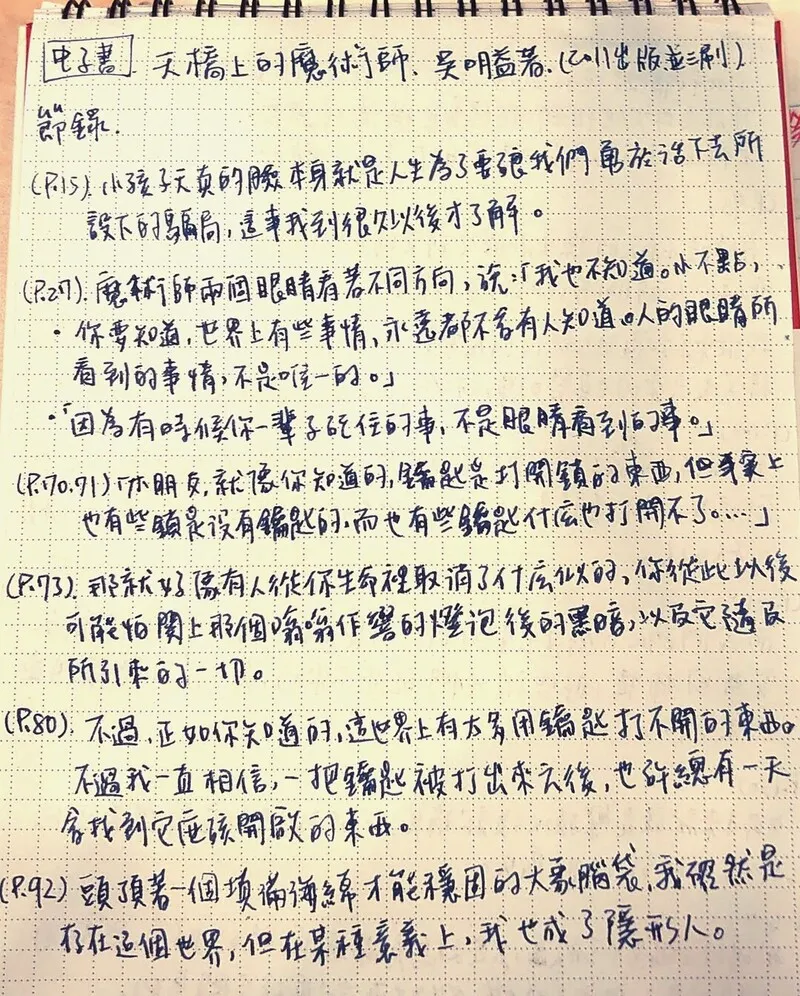 电子書 天橋上的魔術師. 吳明益著. (2011出版並三刷)
節錄.
(P.15). 小孩子天真的臉本身就是人生為了要讓我們勇於活下去所
設下的騙局,這事我到很久以後才了解。
(P.27). 魔術師兩個眼睛看著不同方向,說:「我也不知道。小不點,
・你要知道,世界上有些事情,永遠都不會有人知道。人的眼睛所
看到的事情,不是唯一的。」
・「因為有時候你一輩子記住的事,不是眼睛看到的事。」
(P.70.71)「小朋友,就像你知道的,鑰匙是打開鎖的東西,但事實上
也有些鎖是沒有鑰匙的,而也有些鑰匙什麼也打開不了。...」
(P.73). 那就好像有人從你生命裡取消了什麼似的,你從此以後
可能怕關上那個嗡嗡作響的燈泡後的黑暗,以及它隨及
所引來的一切。
(P.80). 不過,正如你知道的,這世界上有太多用鑰匙打不開的東西。
不過我一直相信,一把鑰匙被打出來之後,也許總有一天
會找到它應該開啟的東西。
(P.92) 頭頂著一個填滿海綿才能穩固的大象腦袋,我確然是
存在這個世界,但在某種意義上,我也成了隱形人。